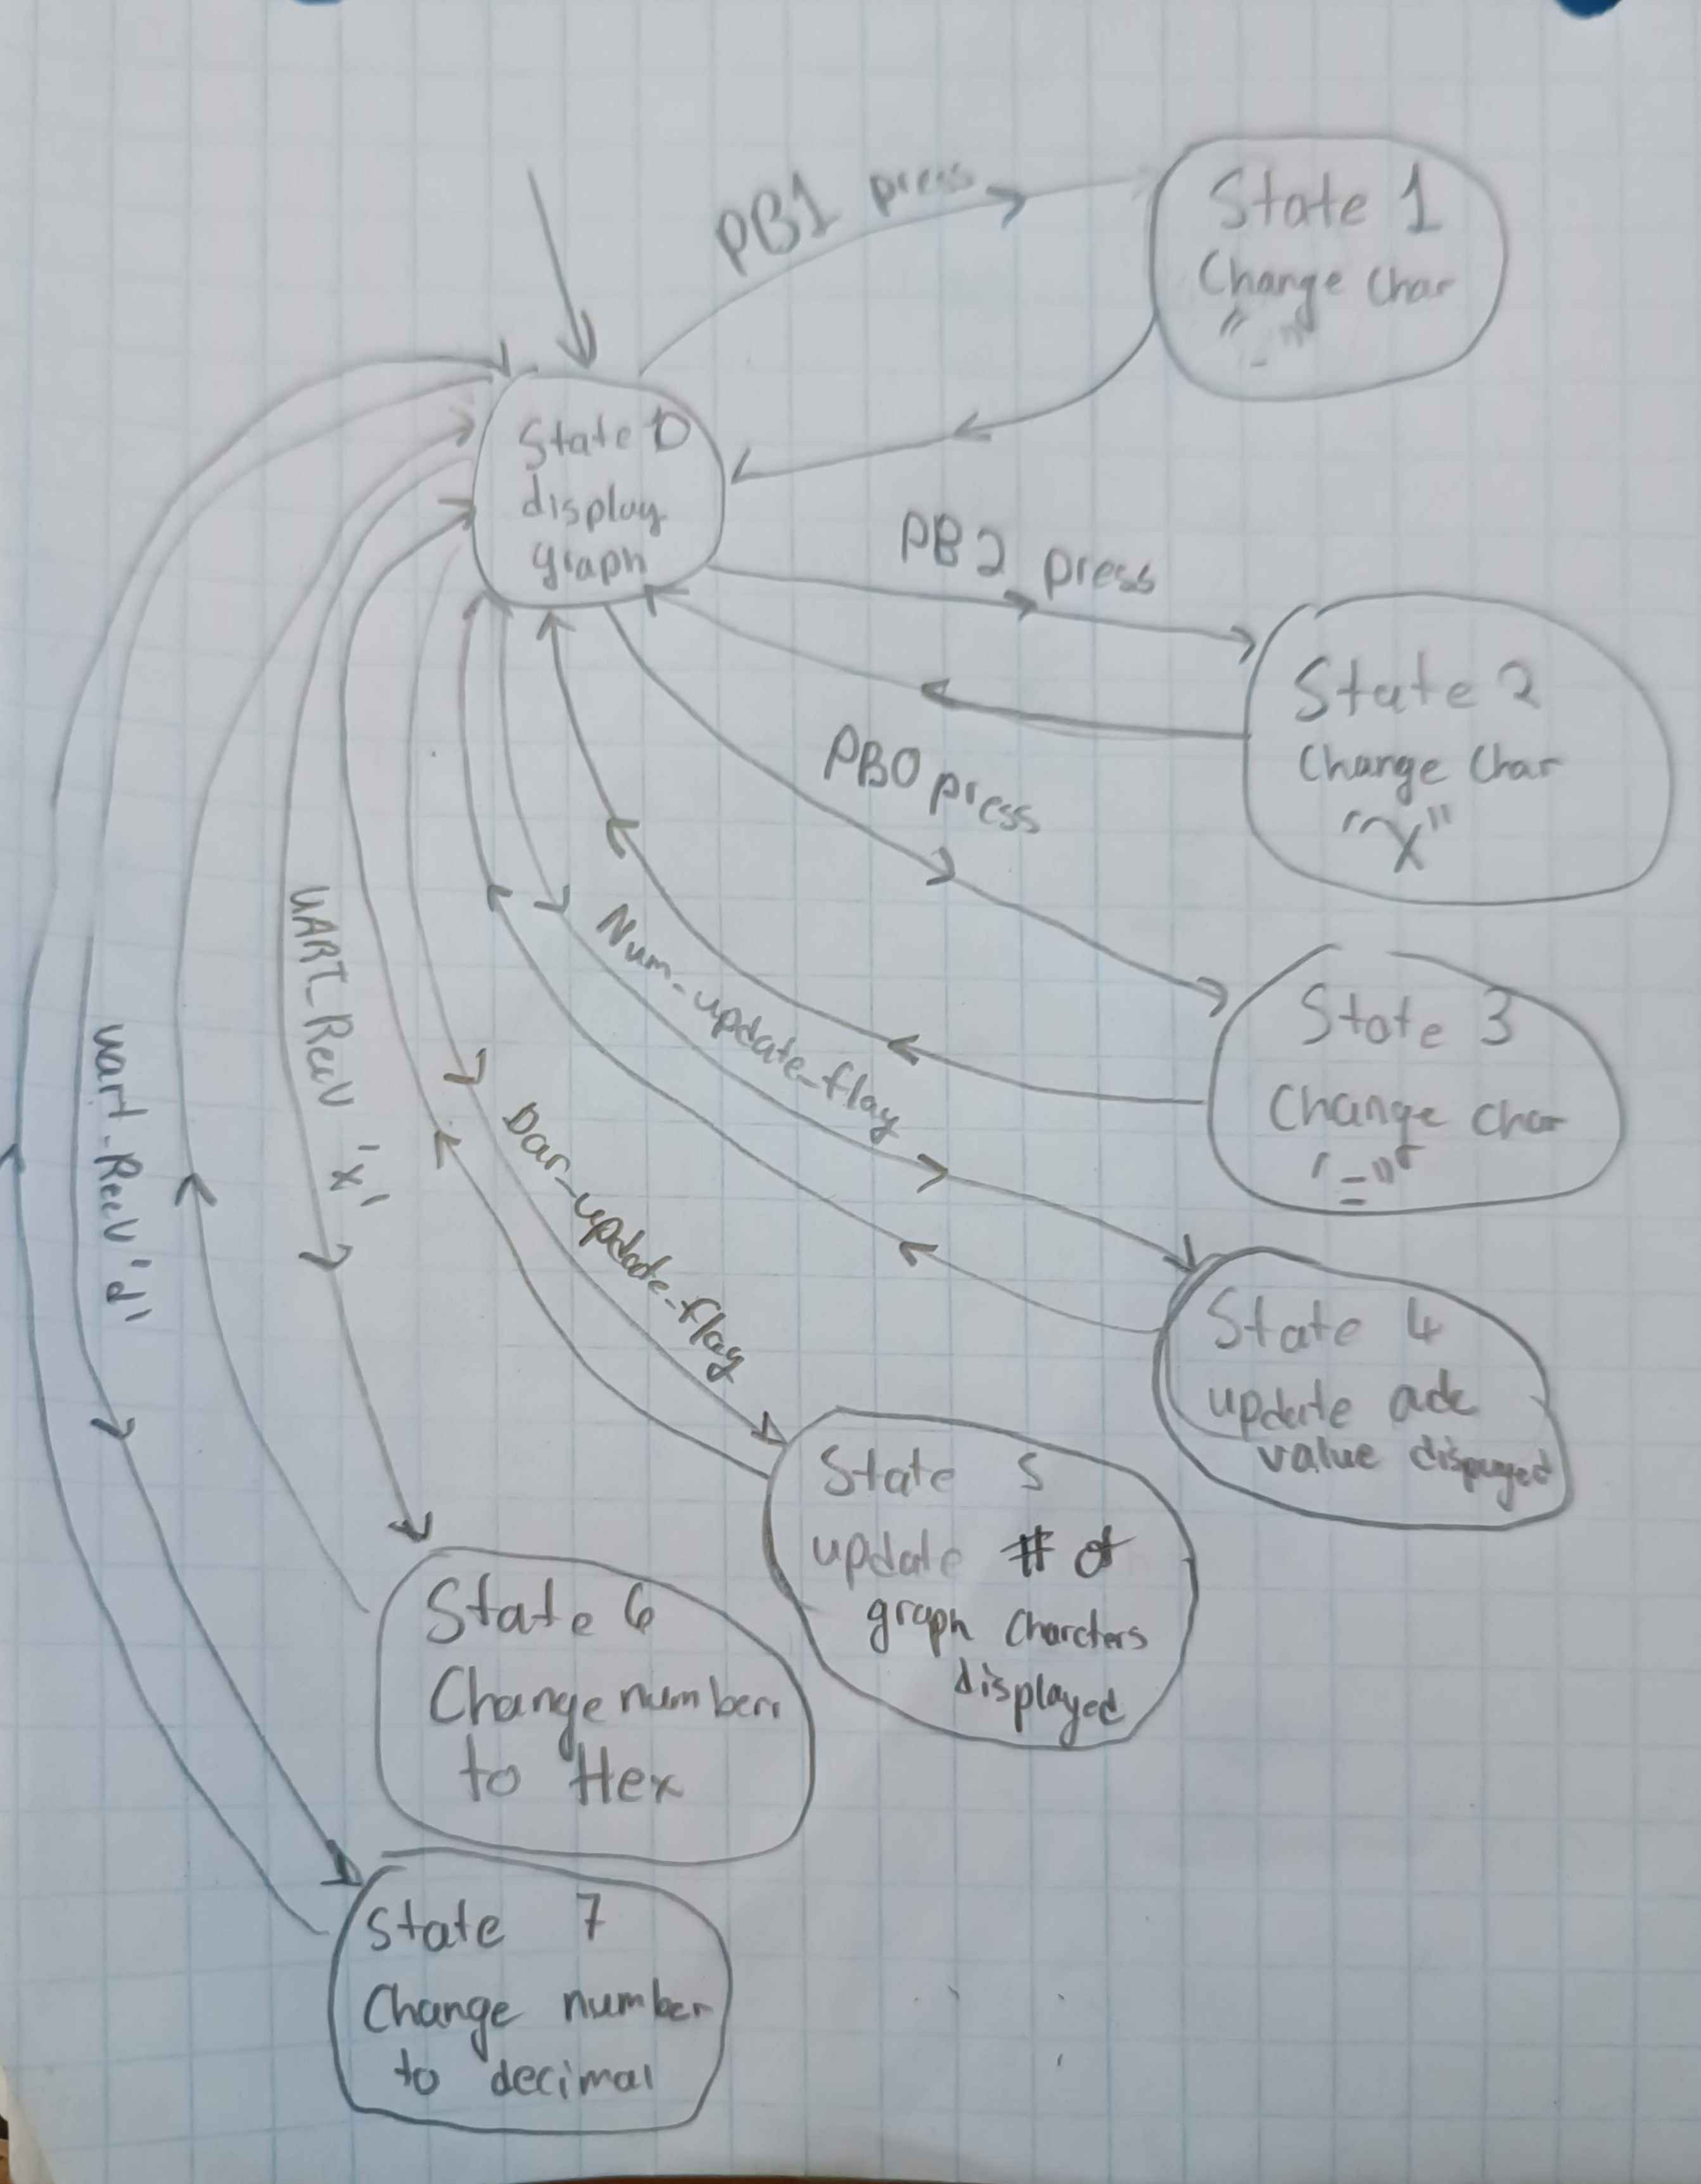 PB1 press
State 1
Change Char
"-"
State 0
display
graph
PB2 press
State 2
Change Char
"X"
PB0 press
State 3
Change Char
"="
Num_update_flag
State 4
update adc
value displayed
Bar_update_flag
State 5
update # of
graph Charcters
displayed
UART_Recv 'x'
State 6
Change number
to Hex
uart_Recv 'd'
State 7
Change number
to decimal